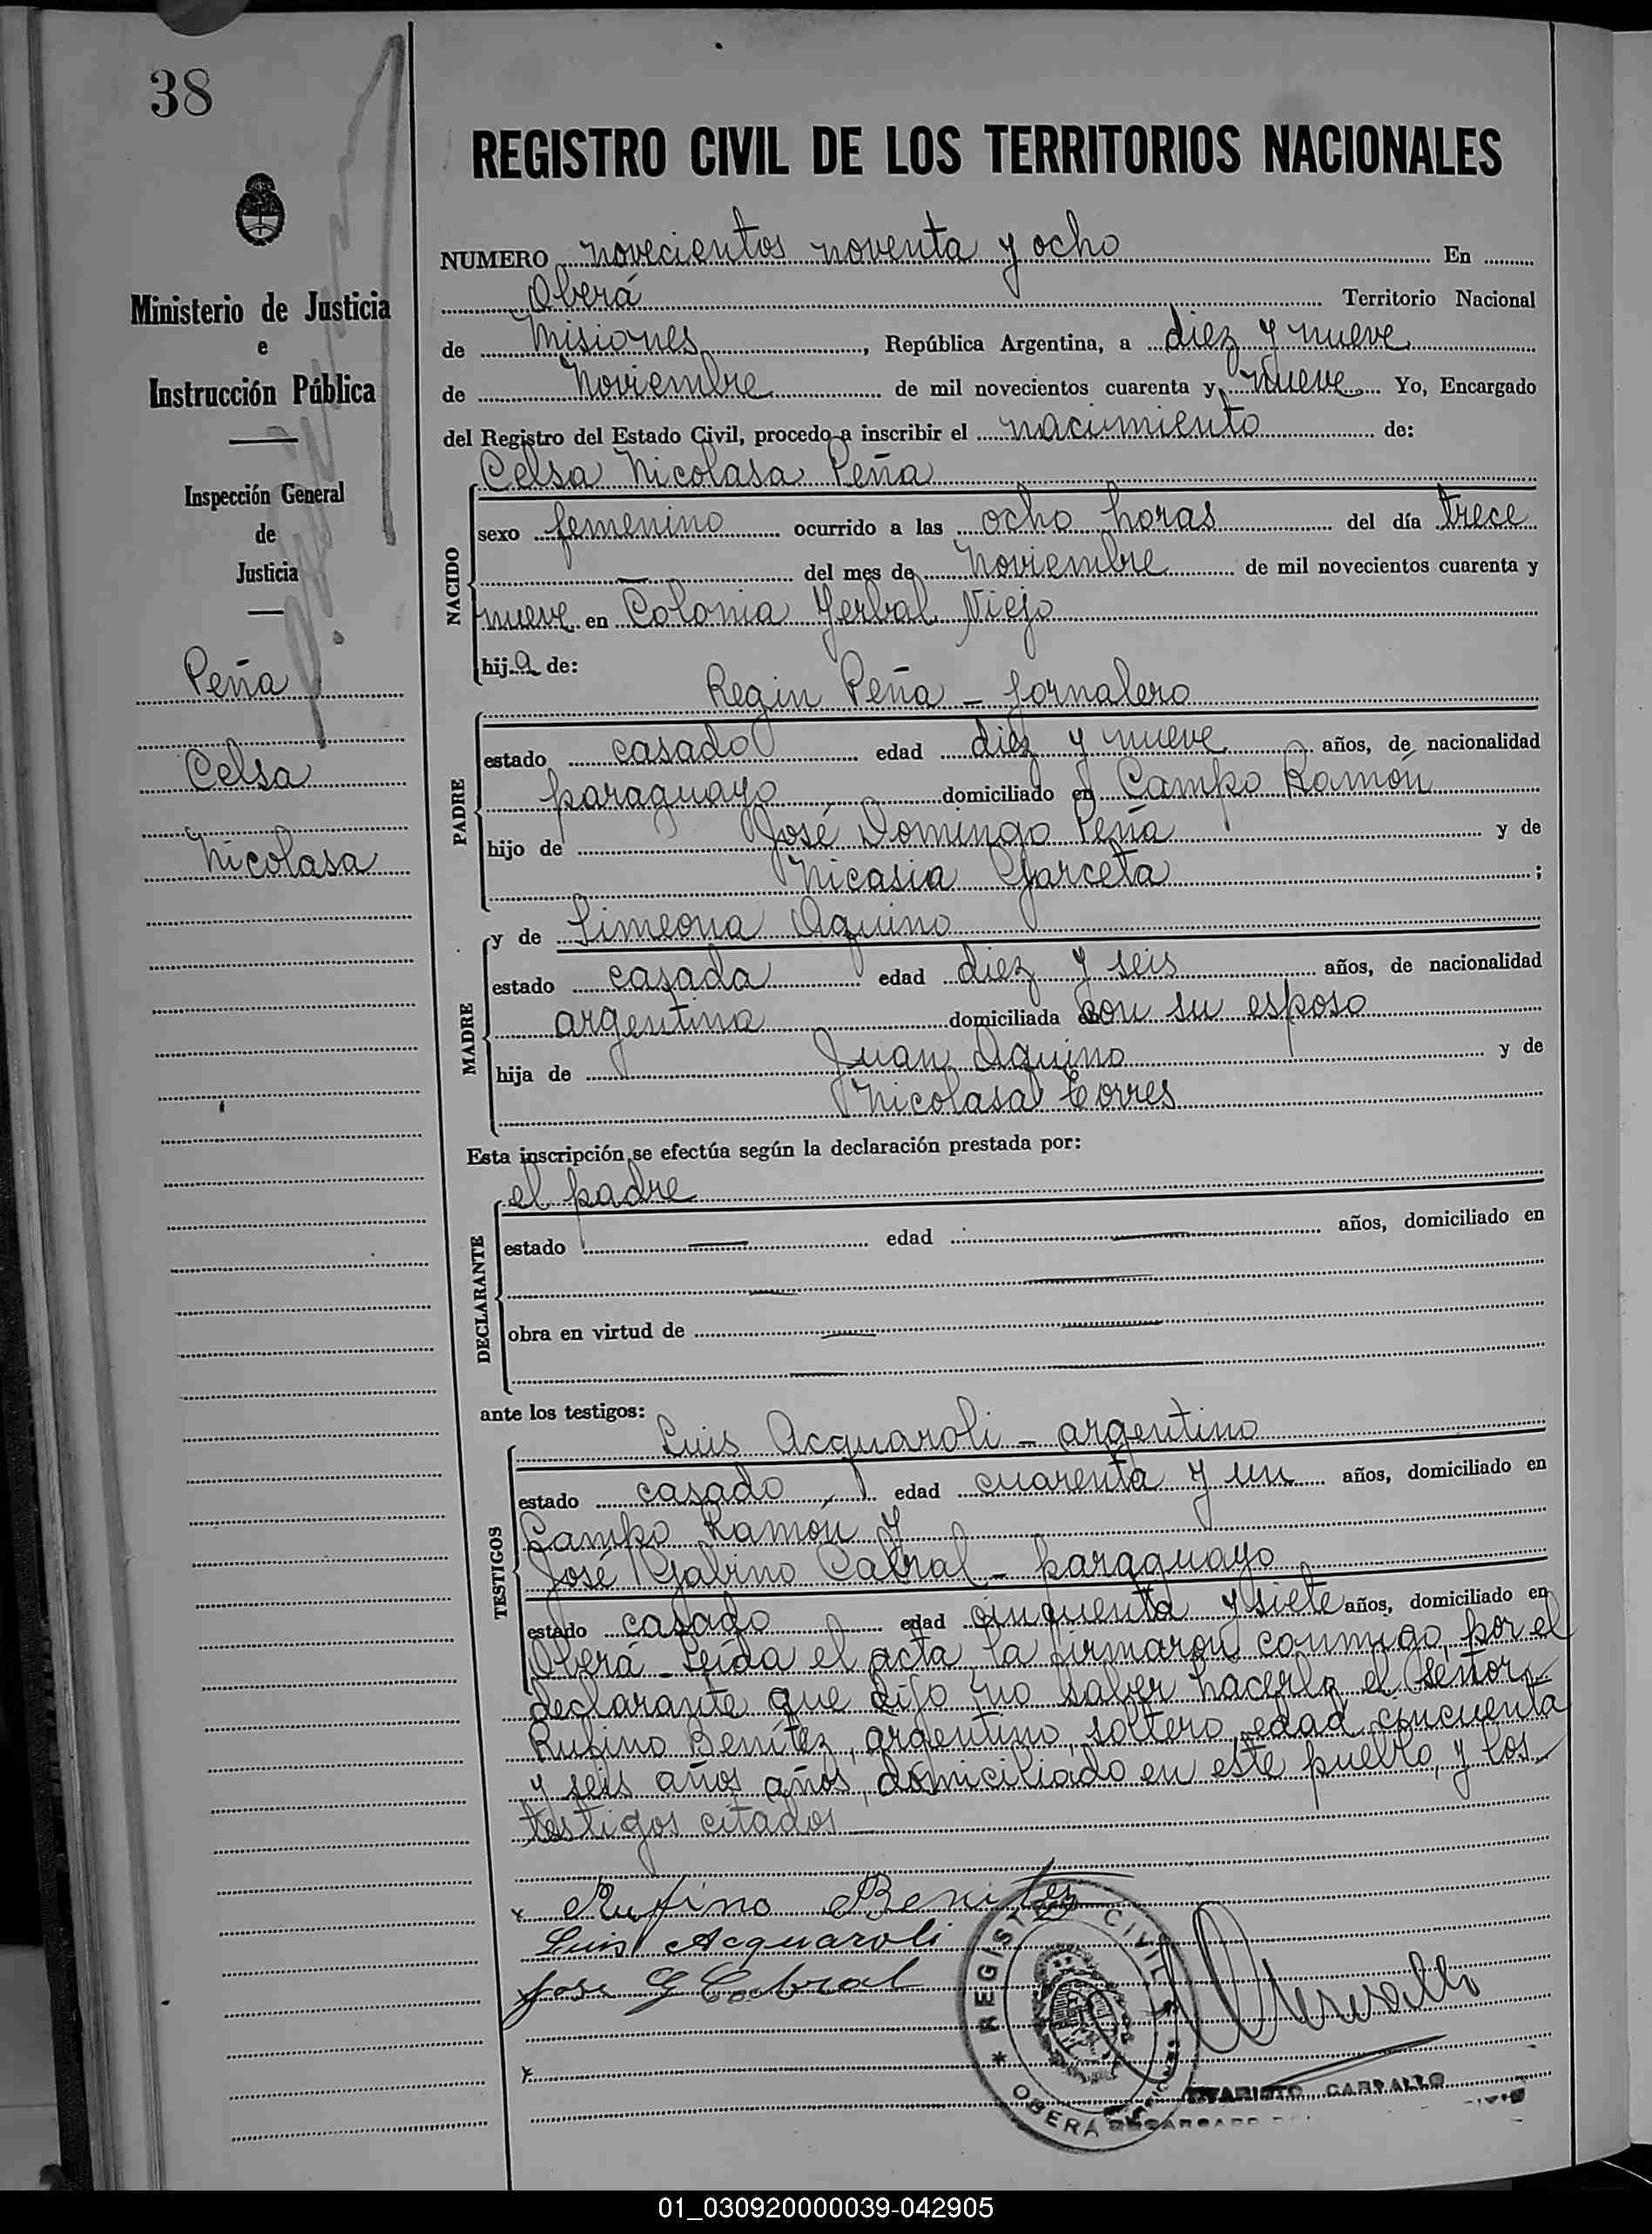 38
REGISTRO CIVIL DE LOS TERRITORIOS NACIONALES
Ministerio de Justicia
e
Instrucción Pública
Inspección General
de
Justicia
Peña
Celsa
Nicolasa
NUMERO novecientos noventa y ocho En
Oberá Territorio Nacional
de Misiones, República Argentina, a diez y nueve
de Noviembre de mil novecientos cuarenta y nueve Yo, Encargado
del Registro del Estado Civil, procedo a inscribir el nacimiento de:
Celsa Nicolasa Peña
NACIDO
sexo femenino ocurrido a las ocho horas del día trece
del mes de Noviembre de mil novecientos cuarenta y
nueve en Colonia Yerbal Viejo
hija de:
Regin Peña - jornalero
PADRE
estado casado edad diez y nueve años, de nacionalidad
paraguayo domiciliado en Campo Ramón
hijo de José Domingo Peña y de
Nicasia Garceta;
y de Simeona Aquino
MADRE
estado casada edad diez y seis años, de nacionalidad
argentina domiciliada con su esposo
hija de Juan Aquino y de
Nicolasa Torres
Esta inscripción se efectúa según la declaración prestada por:
el padre
DECLARANTE
estado — edad — años, domiciliado en
obra en virtud de
ante los testigos:
Luis Acquaroli - argentino
TESTIGOS
estado casado, edad cuarenta y un años, domiciliado en
Campo Ramon y
José Gabino Cabral - paraguayo
estado casado edad cinquenta y siete años, domiciliado en
Oberá - Leída el acta, la firmaron conmigo, por el
declarante que dijo no saber hacerlo el señor
Rufino Benítez, argentino, soltero, edad cincuenta
y seis años años, domiciliado en este pueblo, y los
testigos citados
x Rufino Benitez
Luis Acquaroli
x Jose G Cabral
REGISTRO CIVIL
OBERÁ
CARBALLO
01_030920000039-042905